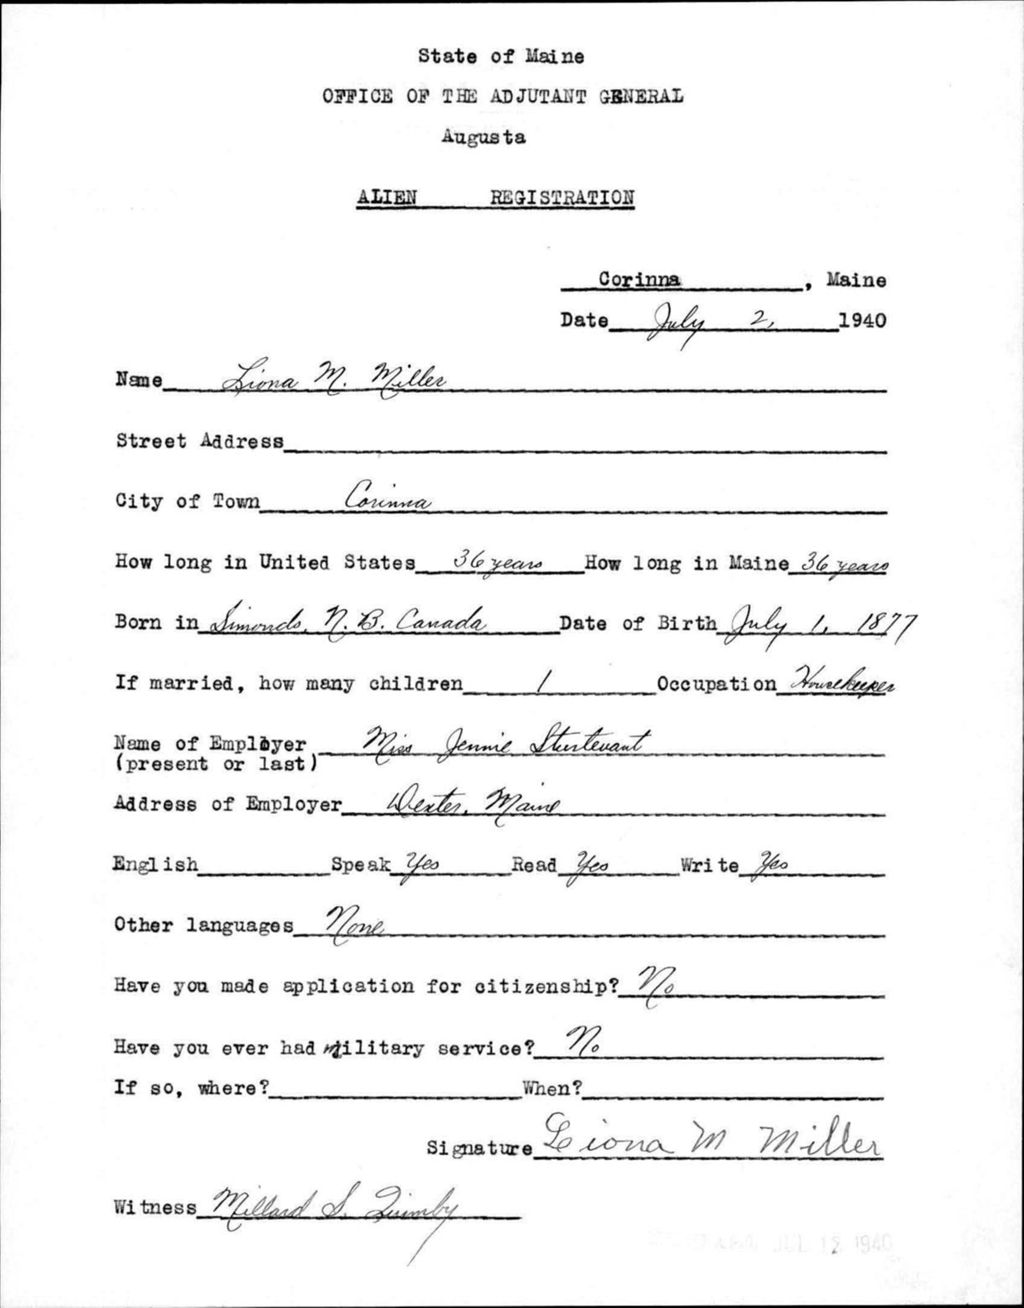 State of Maine
OFFICE OF THE ADJUTANT GENERAL
Augusta
ALIEN REGISTRATION
Corinna, Maine
Date July 2, 1940
Name Liona M. Miller
Street Address
City of Town Corinna
How long in United States 36 years How long in Maine 36 years
Born in Simonds, N.B. Canada Date of Birth July 1, 1877
If married, how many children 1 Occupation Housekeeper
Name of Employer Miss Jennie Sturtevant
(present or last)
Address of Employer Dexter, Maine
English Speak Yes Read Yes Write Yes
Other languages None
Have you made application for citizenship? No
Have you ever had military service? No
If so, where? When?
Signature Liona M Miller
Witness Millard S. Quimby
JUL 12 1940